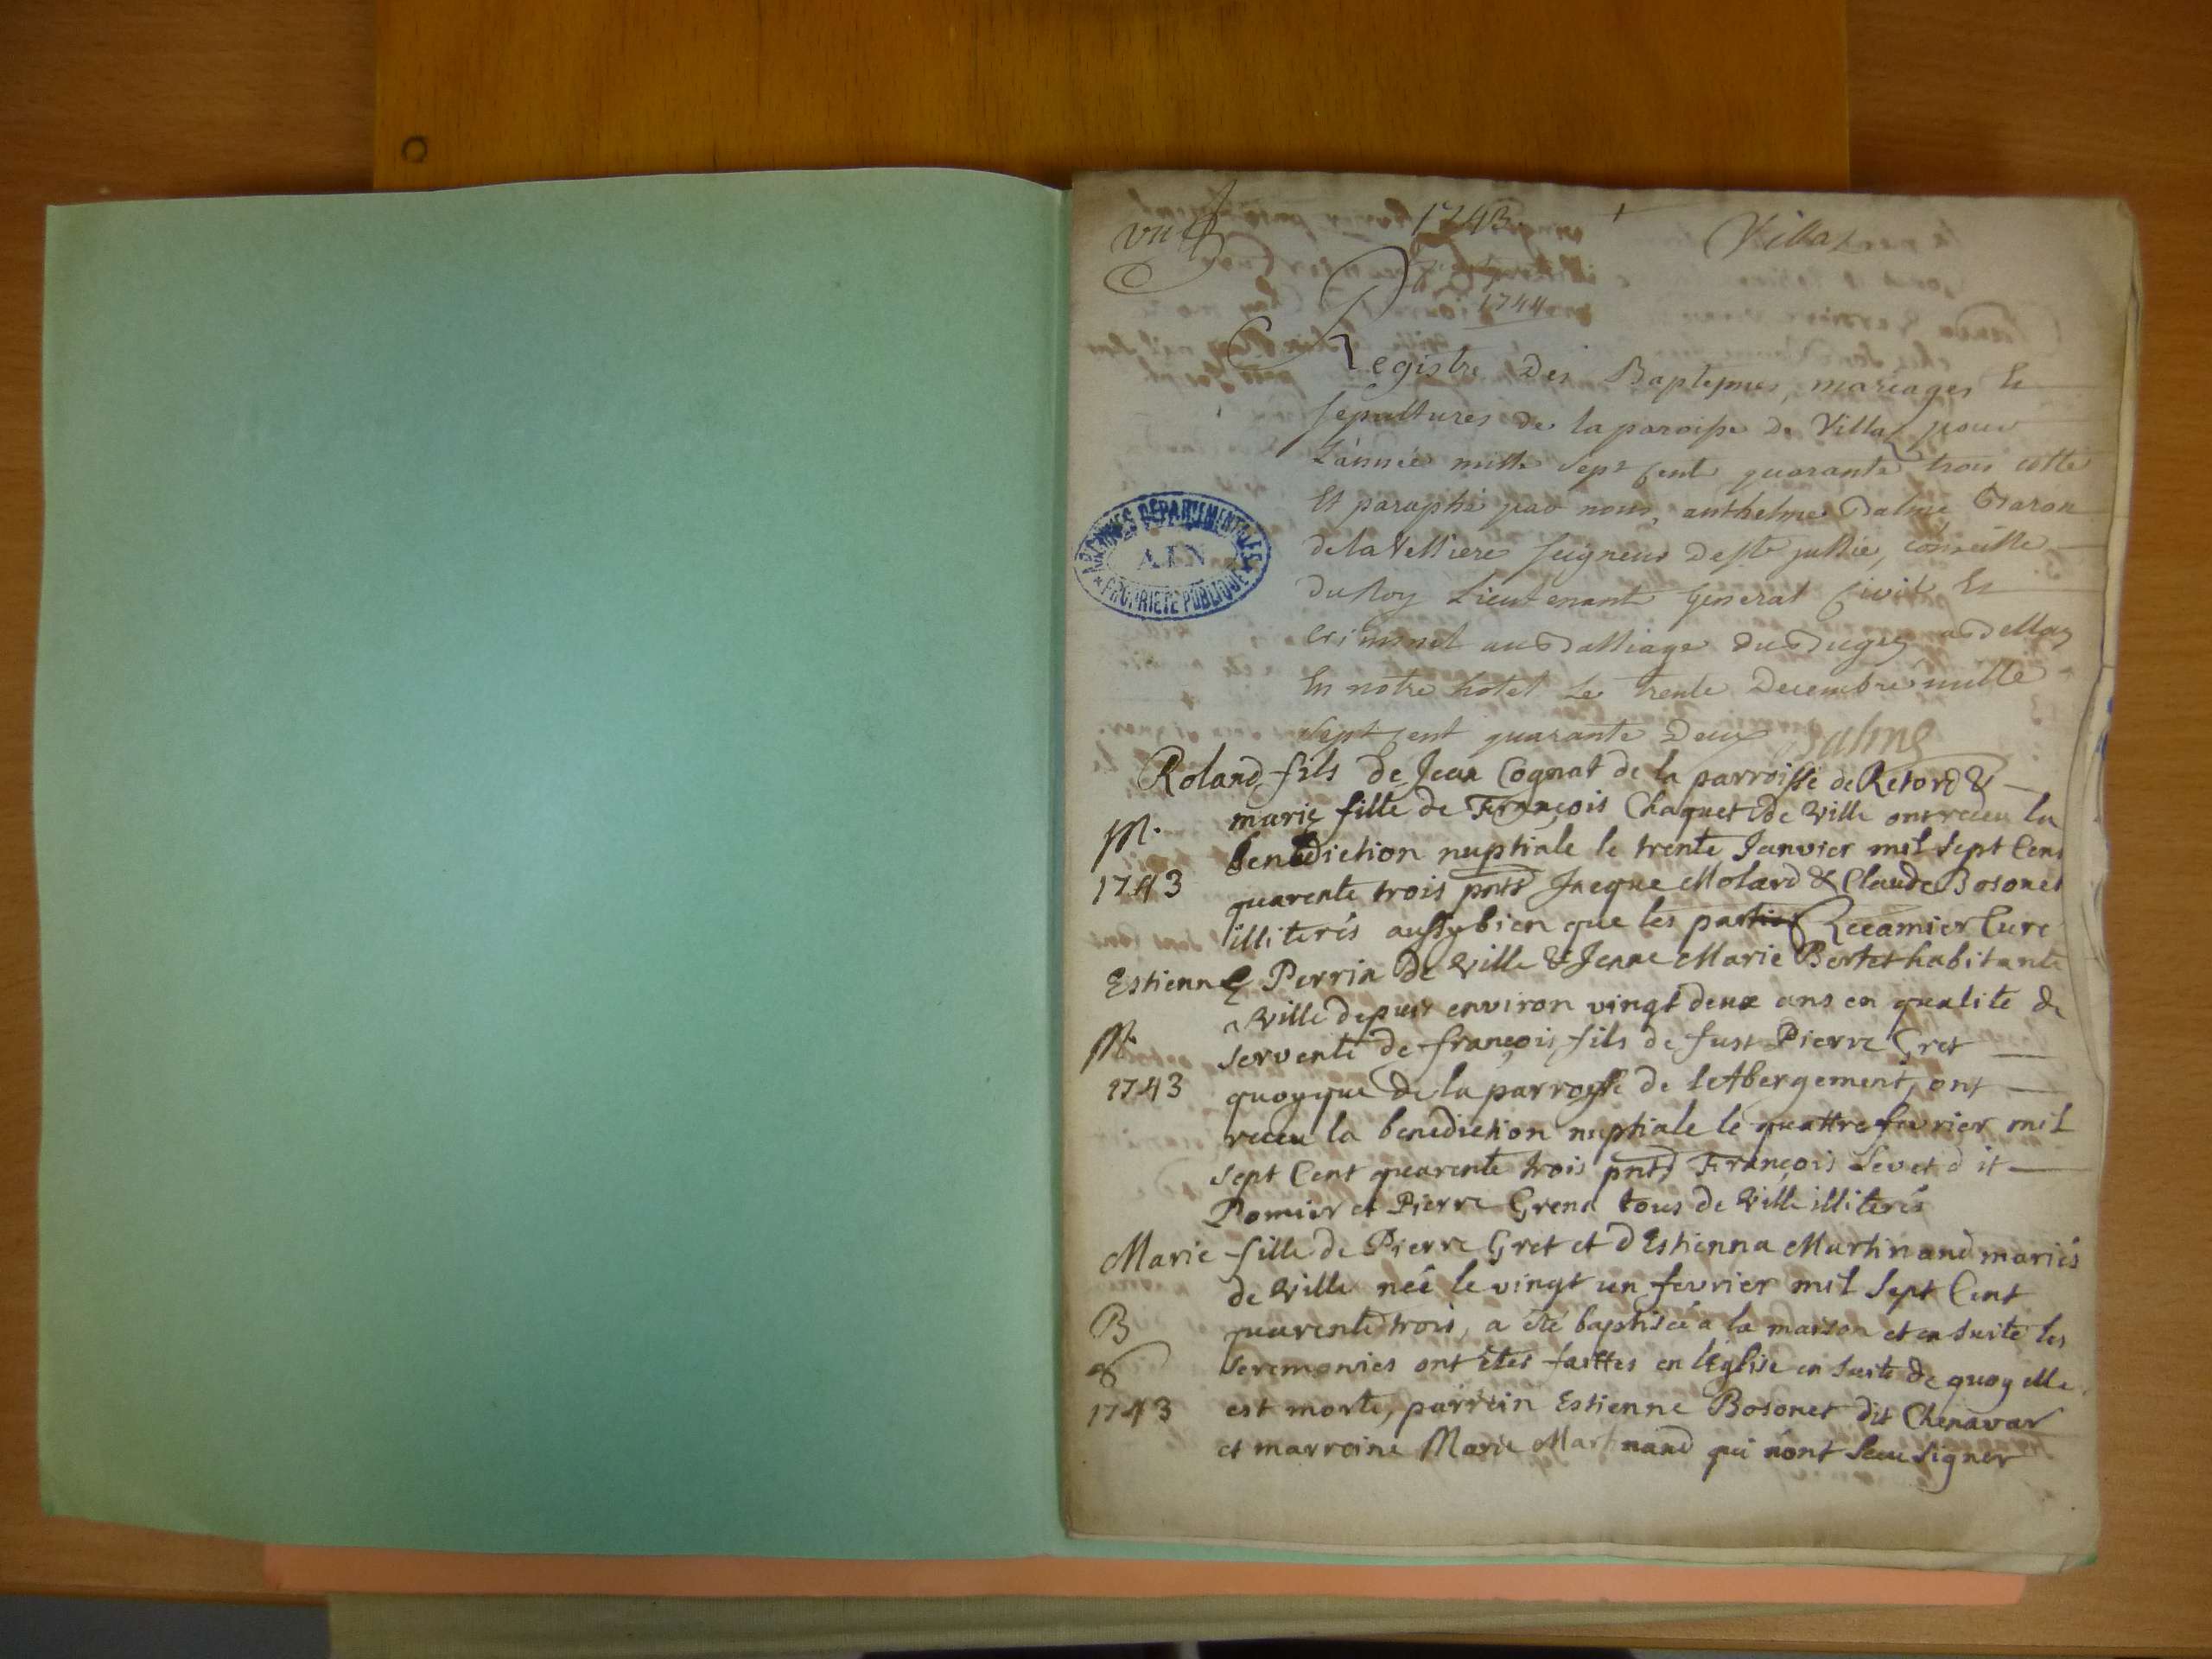 1743
Villaz
1744
Registre Des Baptesmes, mariages Et
sepultures de la paroisse De Villaz pour
L'année mille sept cent quarante trois cotté
Et paraphé par nous, anthelme Balme Baron
de la Vellieres seigneur De ste jullie, conseille
Du Roy Lieutenant General Civil Et
criminel au Balliage Du Bugey a Belley
En notre hotel Le trente Decembre mille
sept cent quarante Deux Balme
Roland fils de Jean Cognat de la parroisse de Retord &
marie fille de François Chaquet de Ville ont receu la
M.
benediction nuptiale le trente Janvier mil sept Cens
1743
quarente trois pnts Jacque Molard & Claude Bosonet
illiterés aussy bien que les parties Recamier Curé
Estienne Perrin de Ville & Jenne Marie Bertet habitante
a Ville depuis environ vingt deux ans en qualite de
M.
servente de françois fils de fust Pierre Gret
1743
quoyque de la parroysse de l'Abergement, ont
receu la benediction nuptiale le quattre fevrier mil
sept Cent quarente trois pnts François Levet dit
Pomier et Pierre Grena tous de Ville illiterés
Marie fille de Pierre Gret et d'Estienna Martinand mariés
de Ville née le vingt un fevrier mil sept Cent
B
quarente trois, a été baptisée a la maison et en suite les
&
seremonies ont étés faittes en l'Eglise en suite de quoy elle
1743
est morte, parrein Estienne Bosonet dit Chenavar
et marreine Marie Martinand qui n'ont sceu signer
ARCHIVES DÉPARTEMENTALES
AIN
PROPRIÉTÉ PUBLIQUE